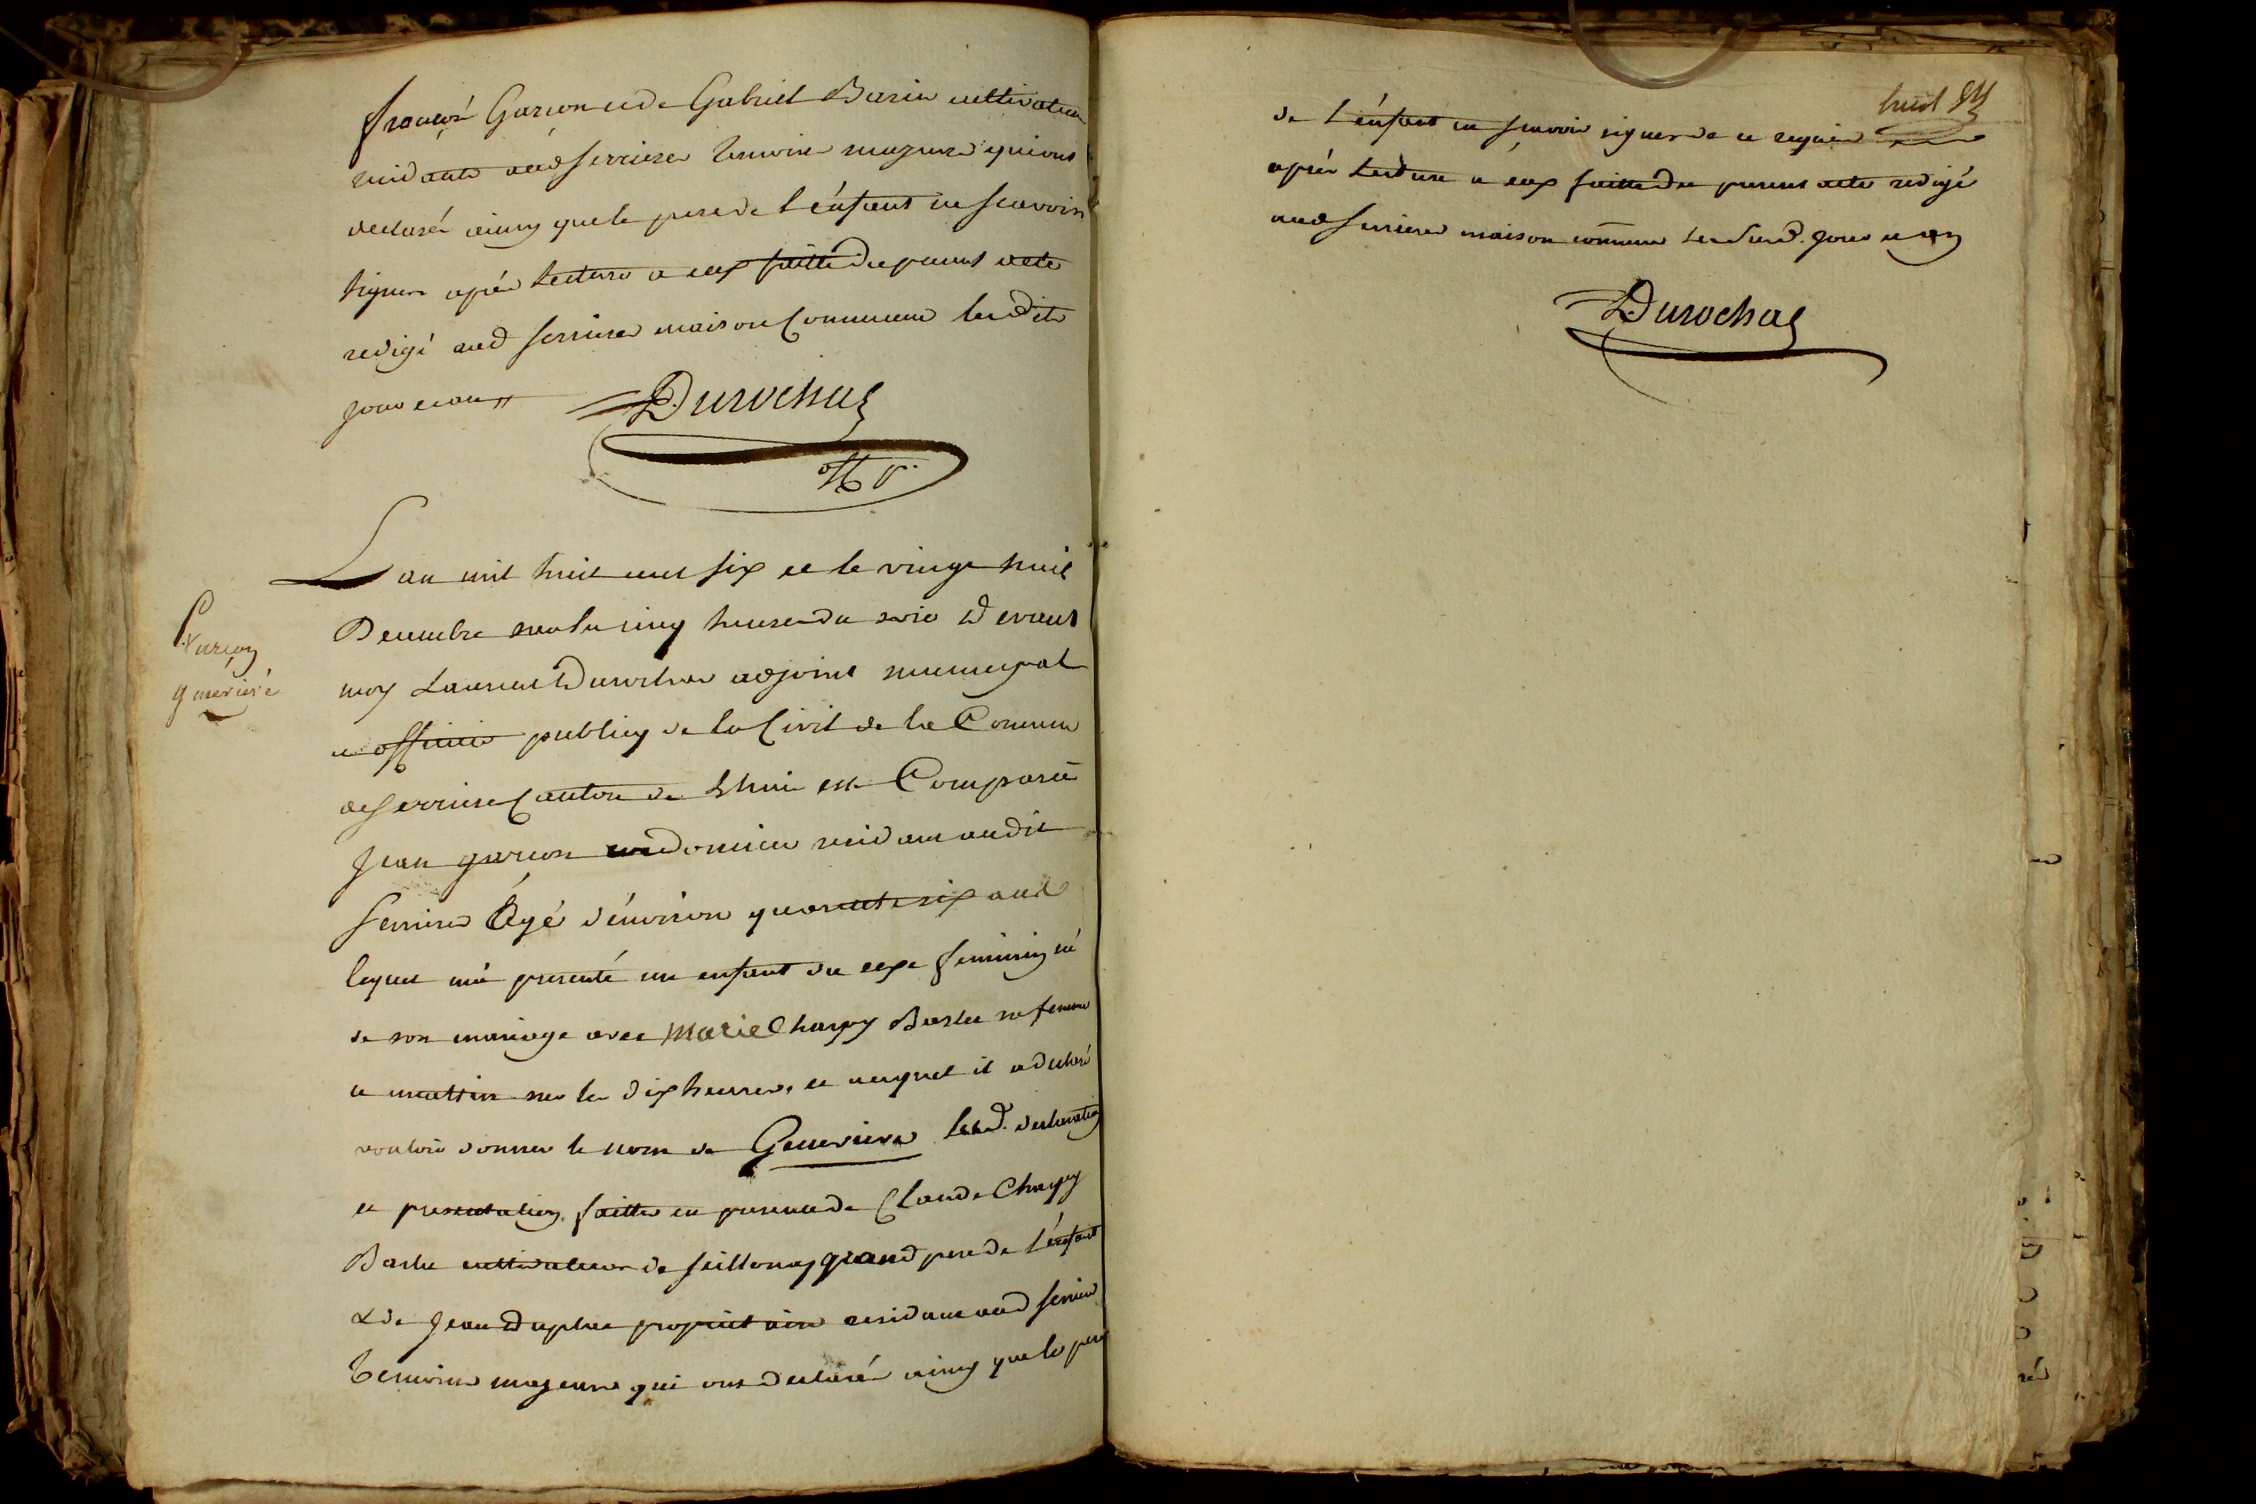 françois Garçon et de Gabriel Barin cultivateur
residants aud serrieres temoins majeurs qui ont
declarés ainsy que le pere de l'énfant ne scavoir
signer après lecture a eux faitte du present acte
redigé aud serrieres maison Commune lesdits
jour et an
Durochas
Garçon
genevieve
L'an mil huit cent six et le vingt huit
Decembre sur les cinq heures du soir Devant
moy Laurent Durochas adjoint municipal
et officier publicq de la Civil de la Commune
de serrieres Canton de Lhuis est Comparu
Jean garçon cordonnier residant audit
serrieres Agé d'énviron quarante six ans
lequel m'a presenté un enfant du sexe feminin né
de son mariage avec Marie Charpy Barlee sa femme
ce mattin sur les dix heures, et auquel il a declaré
vouloir donner le nom de Genevieve lesd. declaration
et presentation faittes en presence de Claude Charpy
Barlee cultivateur de seillonas grand pere de l'énfant
& de Jean Duplas proprietaire residant aud serrieres
temoins majeurs qui ont declarés ainsy que le pere
huit
de l'énfant ne scavoir signer de ce requis
après lecture a éux faitte du present acte redigé
aud serrieres maison commune les susd. jour et an
Durochas